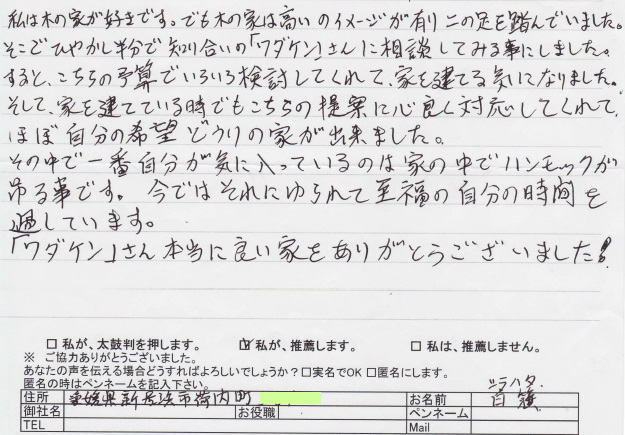 私は木の家が好きです。でも木の家は高いのイメージが有り二の足を踏んでいました。
そこでひやかし半分で知り合いの「ワダケン」さんに相談してみる事にしました。
すると、こちらの予算でいろいろ検討してくれて、家を建てる気になりました。
そして、家を建てている時でもこちらの提案に心良く対応してくれて、
ほぼ自分の希望どうりの家が出来ました。
その中で一番自分が気に入っているのは家の中でハンモックが
吊る事です。今ではそれにゆられて至福の自分の時間を
過しています。
「ワダケン」さん本当に良い家をありがとうございました!
□ 私が、太鼓判を押します。 ☑ 私が、推薦します。 □ 私は、推薦しません。
※ ご協力ありがとうございました。
あなたの声を伝える場合どうすればよろしいでしょうか?□実名でOK □匿名にします。
匿名の時はペンネームを記入下さい。
住所 愛媛県新居浜市御内町 お名前 シラハタ 白籏
御社名 お役職 ペンネーム
TEL Mail